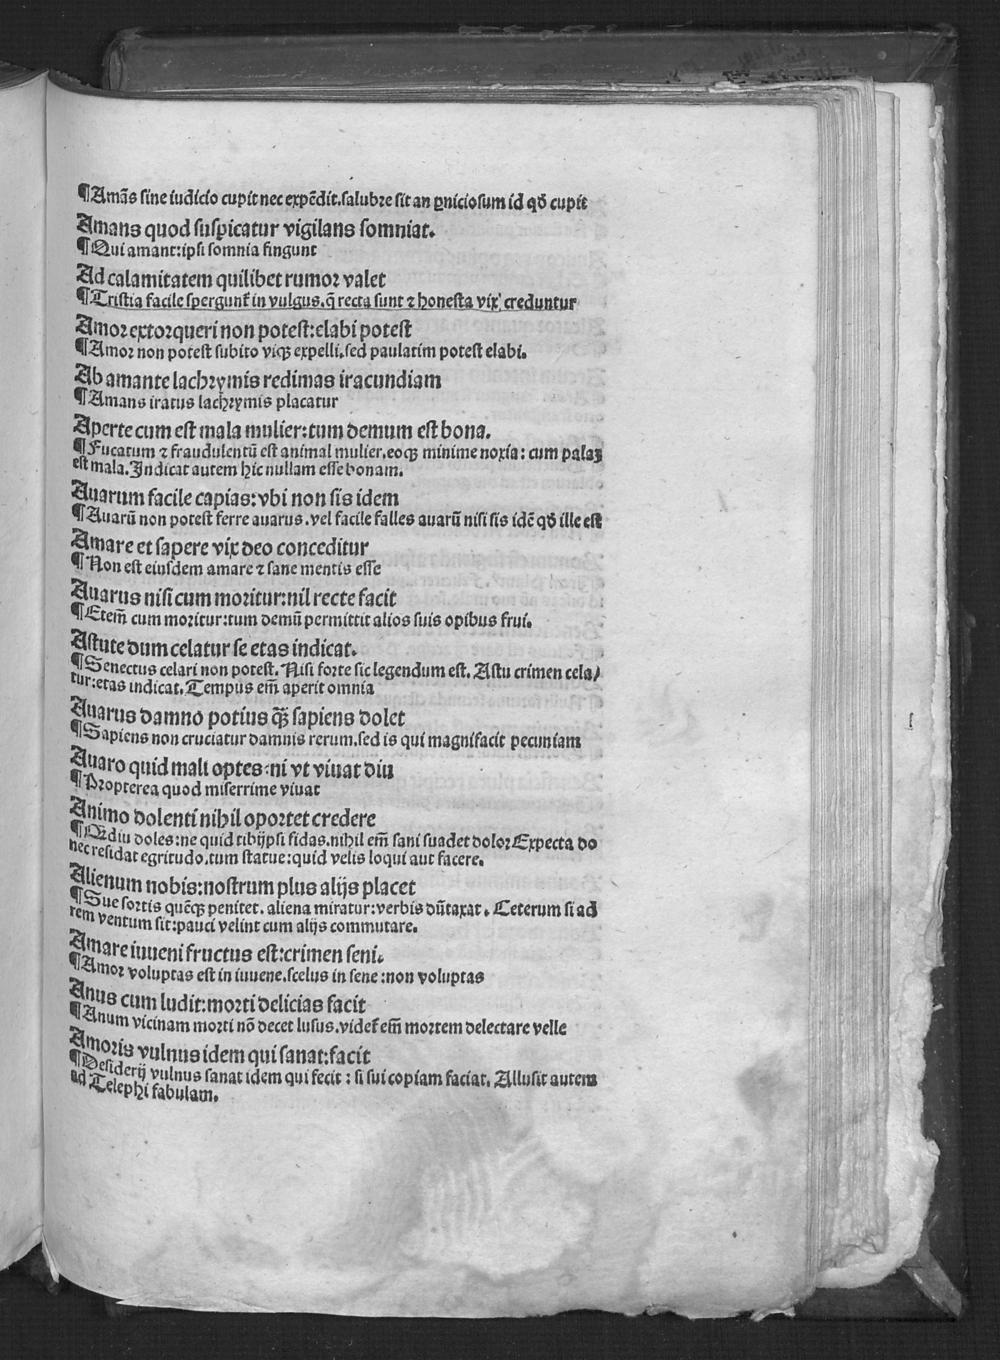 ¶Amãs sine iudicio cupit nec expẽdit.salubre sit an ꝑniciosum id qđ cupit
Amans quod suspicatur vigilans somniat.
¶Qui amant:ipsi somnia fingunt
Ad calamitatem quilibet rumor valet
¶Tristia facile spergunt̃ in vulgus.q̃ recta sunt ⁊ honesta vix creduntur
Amor extorqueri non potest:elabi potest
¶Amor non potest subito viqꝫ expelli.sed paulatim potest elabi.
Ab amante lachrymis redimas iracundiam
¶Amans iratus lachrymis placatur
Aperte cum est mala mulier:tum demum est bona.
¶Fucatum ⁊ fraudulentũ est animal mulier.eoqꝫ minime noxia: cum palaꝫ
est mala.Indicat autem hic nullam esse bonam.
Auarum facile capias:vbi non sis idem
¶Auarũ non potest ferre auarus.vel facile falles auarũ nisi sis idẽ qđ ille est
Amare et sapere vix deo conceditur
¶Non est eiusdem amare ⁊ sane mentis esse
Auarus nisi cum moritur:nil recte facit
¶Etem̃ cum moritur:tum demũ permittit alios suis opibus frui.
Astute dum celatur se etas indicat.
¶Senectus celari non potest. Nisi forte sic legendum est. Astu crimen cela/
tur:etas indicat.Tempus em̃ aperit omnia
Auarus damno potius q̃ꝫ sapiens dolet
¶Sapiens non cruciatur damnis rerum.sed is qui magnifacit pecuniam
Auaro quid mali optes:ni vt viuat diu
¶Propterea quod miserrime viuat
Animo dolenti nihil oportet credere
¶Q̃diu doles:ne quid tibijpsi fidas.nihil em̃ sani suadet dolor Expecta do
nec residat egritudo.tum statue:quid velis loqui aut facere.
Alienum nobis:nostrum plus alijs placet
¶Sue sortis quẽqꝫ penitet. aliena miratur:verbis dũtaxat. Ceterum si ad
rem ventum sit:pauci velint cum alijs commutare.
Amare iuueni fructus est:crimen seni.
¶Amor voluptas est in iuuene.scelus in sene:non voluptas
Anus cum ludit:morti delicias facit
¶Anum vicinam morti nõ decet lusus.videt̃ em̃ mortem delectare velle
Amoris vulnus idem qui sanat:facit
¶Desiderij vulnus sanat idem qui fecit : si sui copiam faciat. Allusit autem
ad Telephi fabulam.